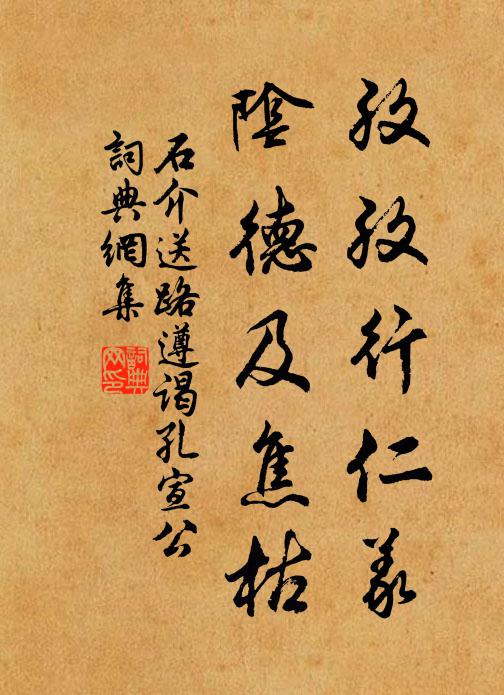 孜孜行仁义
陰德及焦枯
石介送路遵谒孔宣公
詞典網集
詞典网印